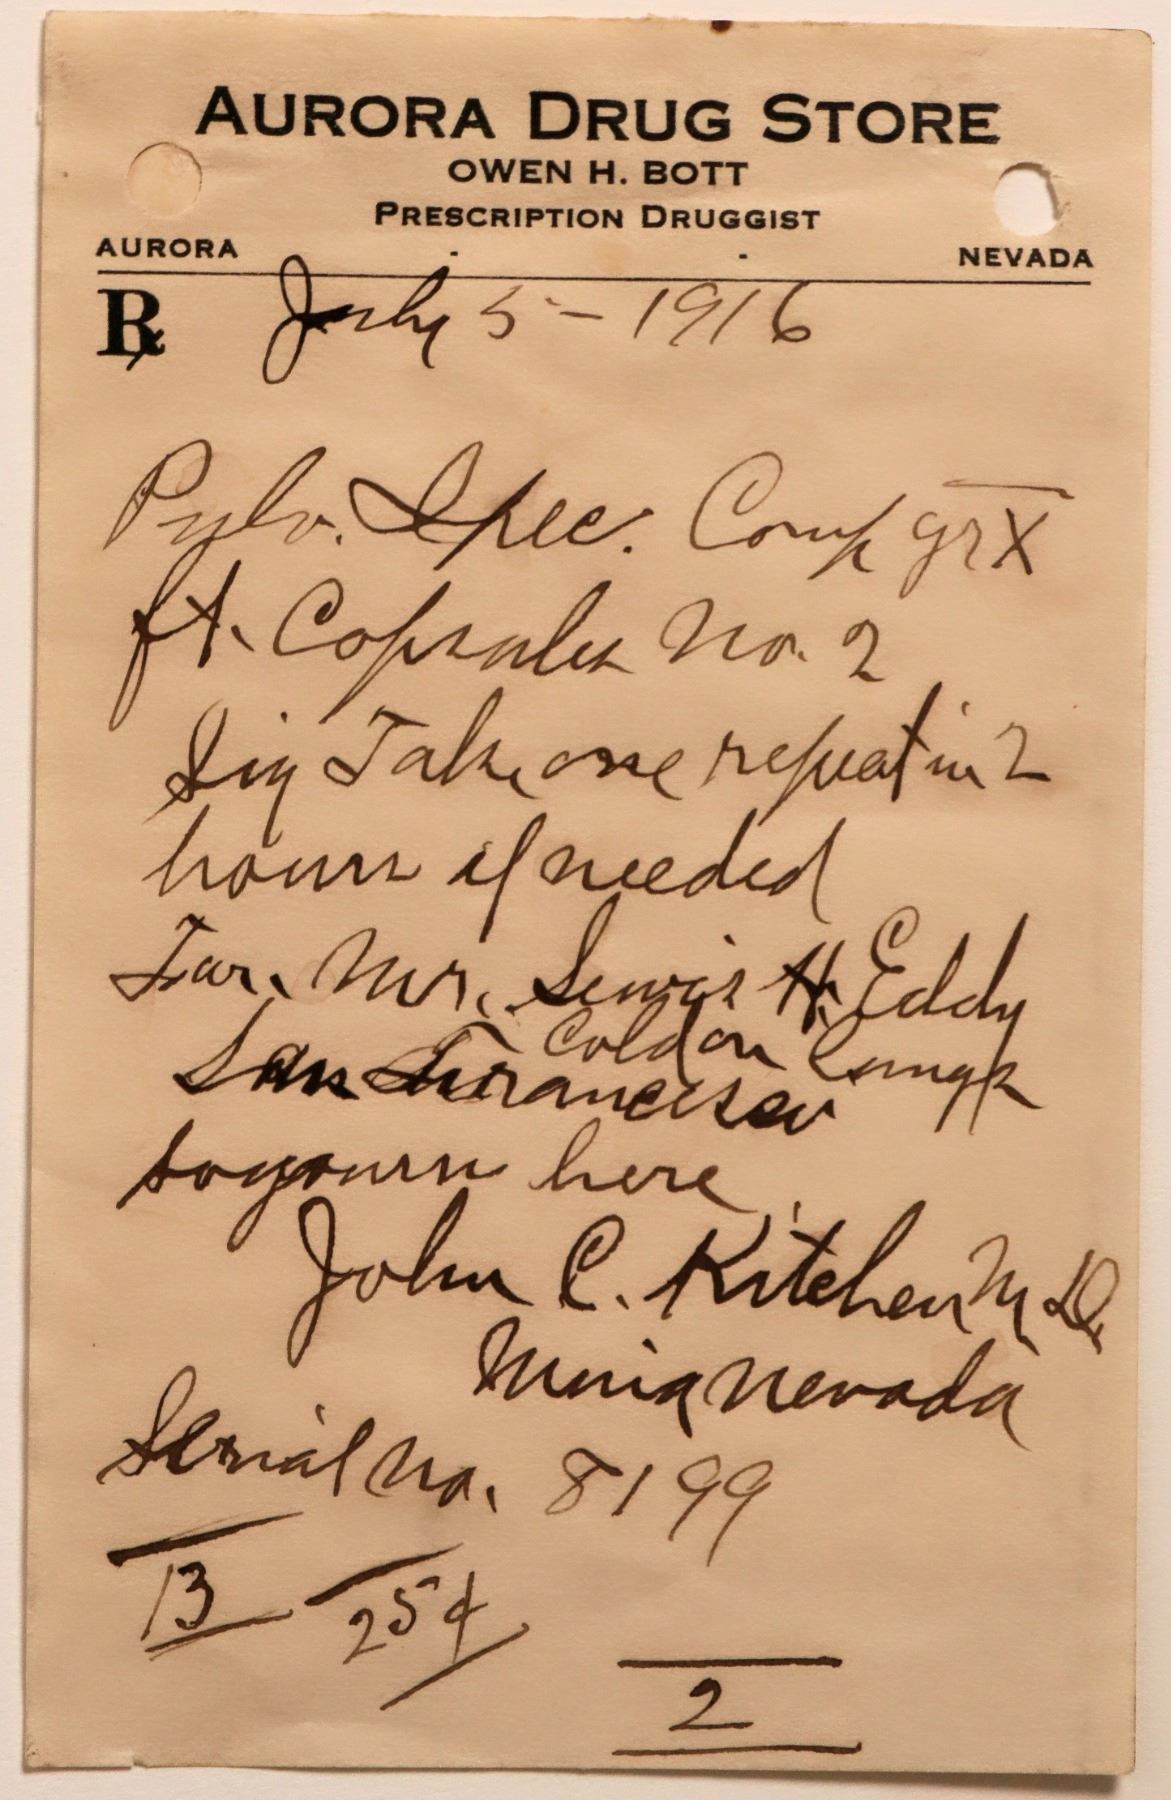 AURORA DRUG STORE
OWEN H. BOTT
PRESCRIPTION DRUGGIST
AURORA NEVADA
Rx July 5 - 1916
Pulv. Ipec. Comp gr X
ft. Capsules No. 2
Sig Take one repeat in 2
hours if needed
For. Mr. Lewis H. Eddy
Cold on Lungs
San Francisco
sogourn here
John C. Kitchen M.D.
Mina Nevada
Serial No. 8199
13 25¢
2